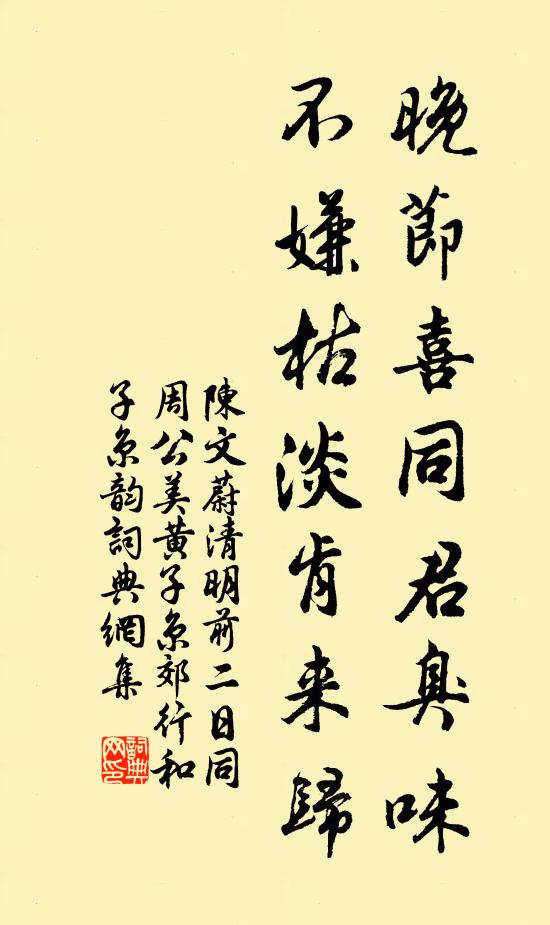 晚節喜同君臭味
不嫌枯淡肯来歸
陳文蔚清明前二日同
周公美黄子京郊行和
子京韵詞典網集
詞典
网印